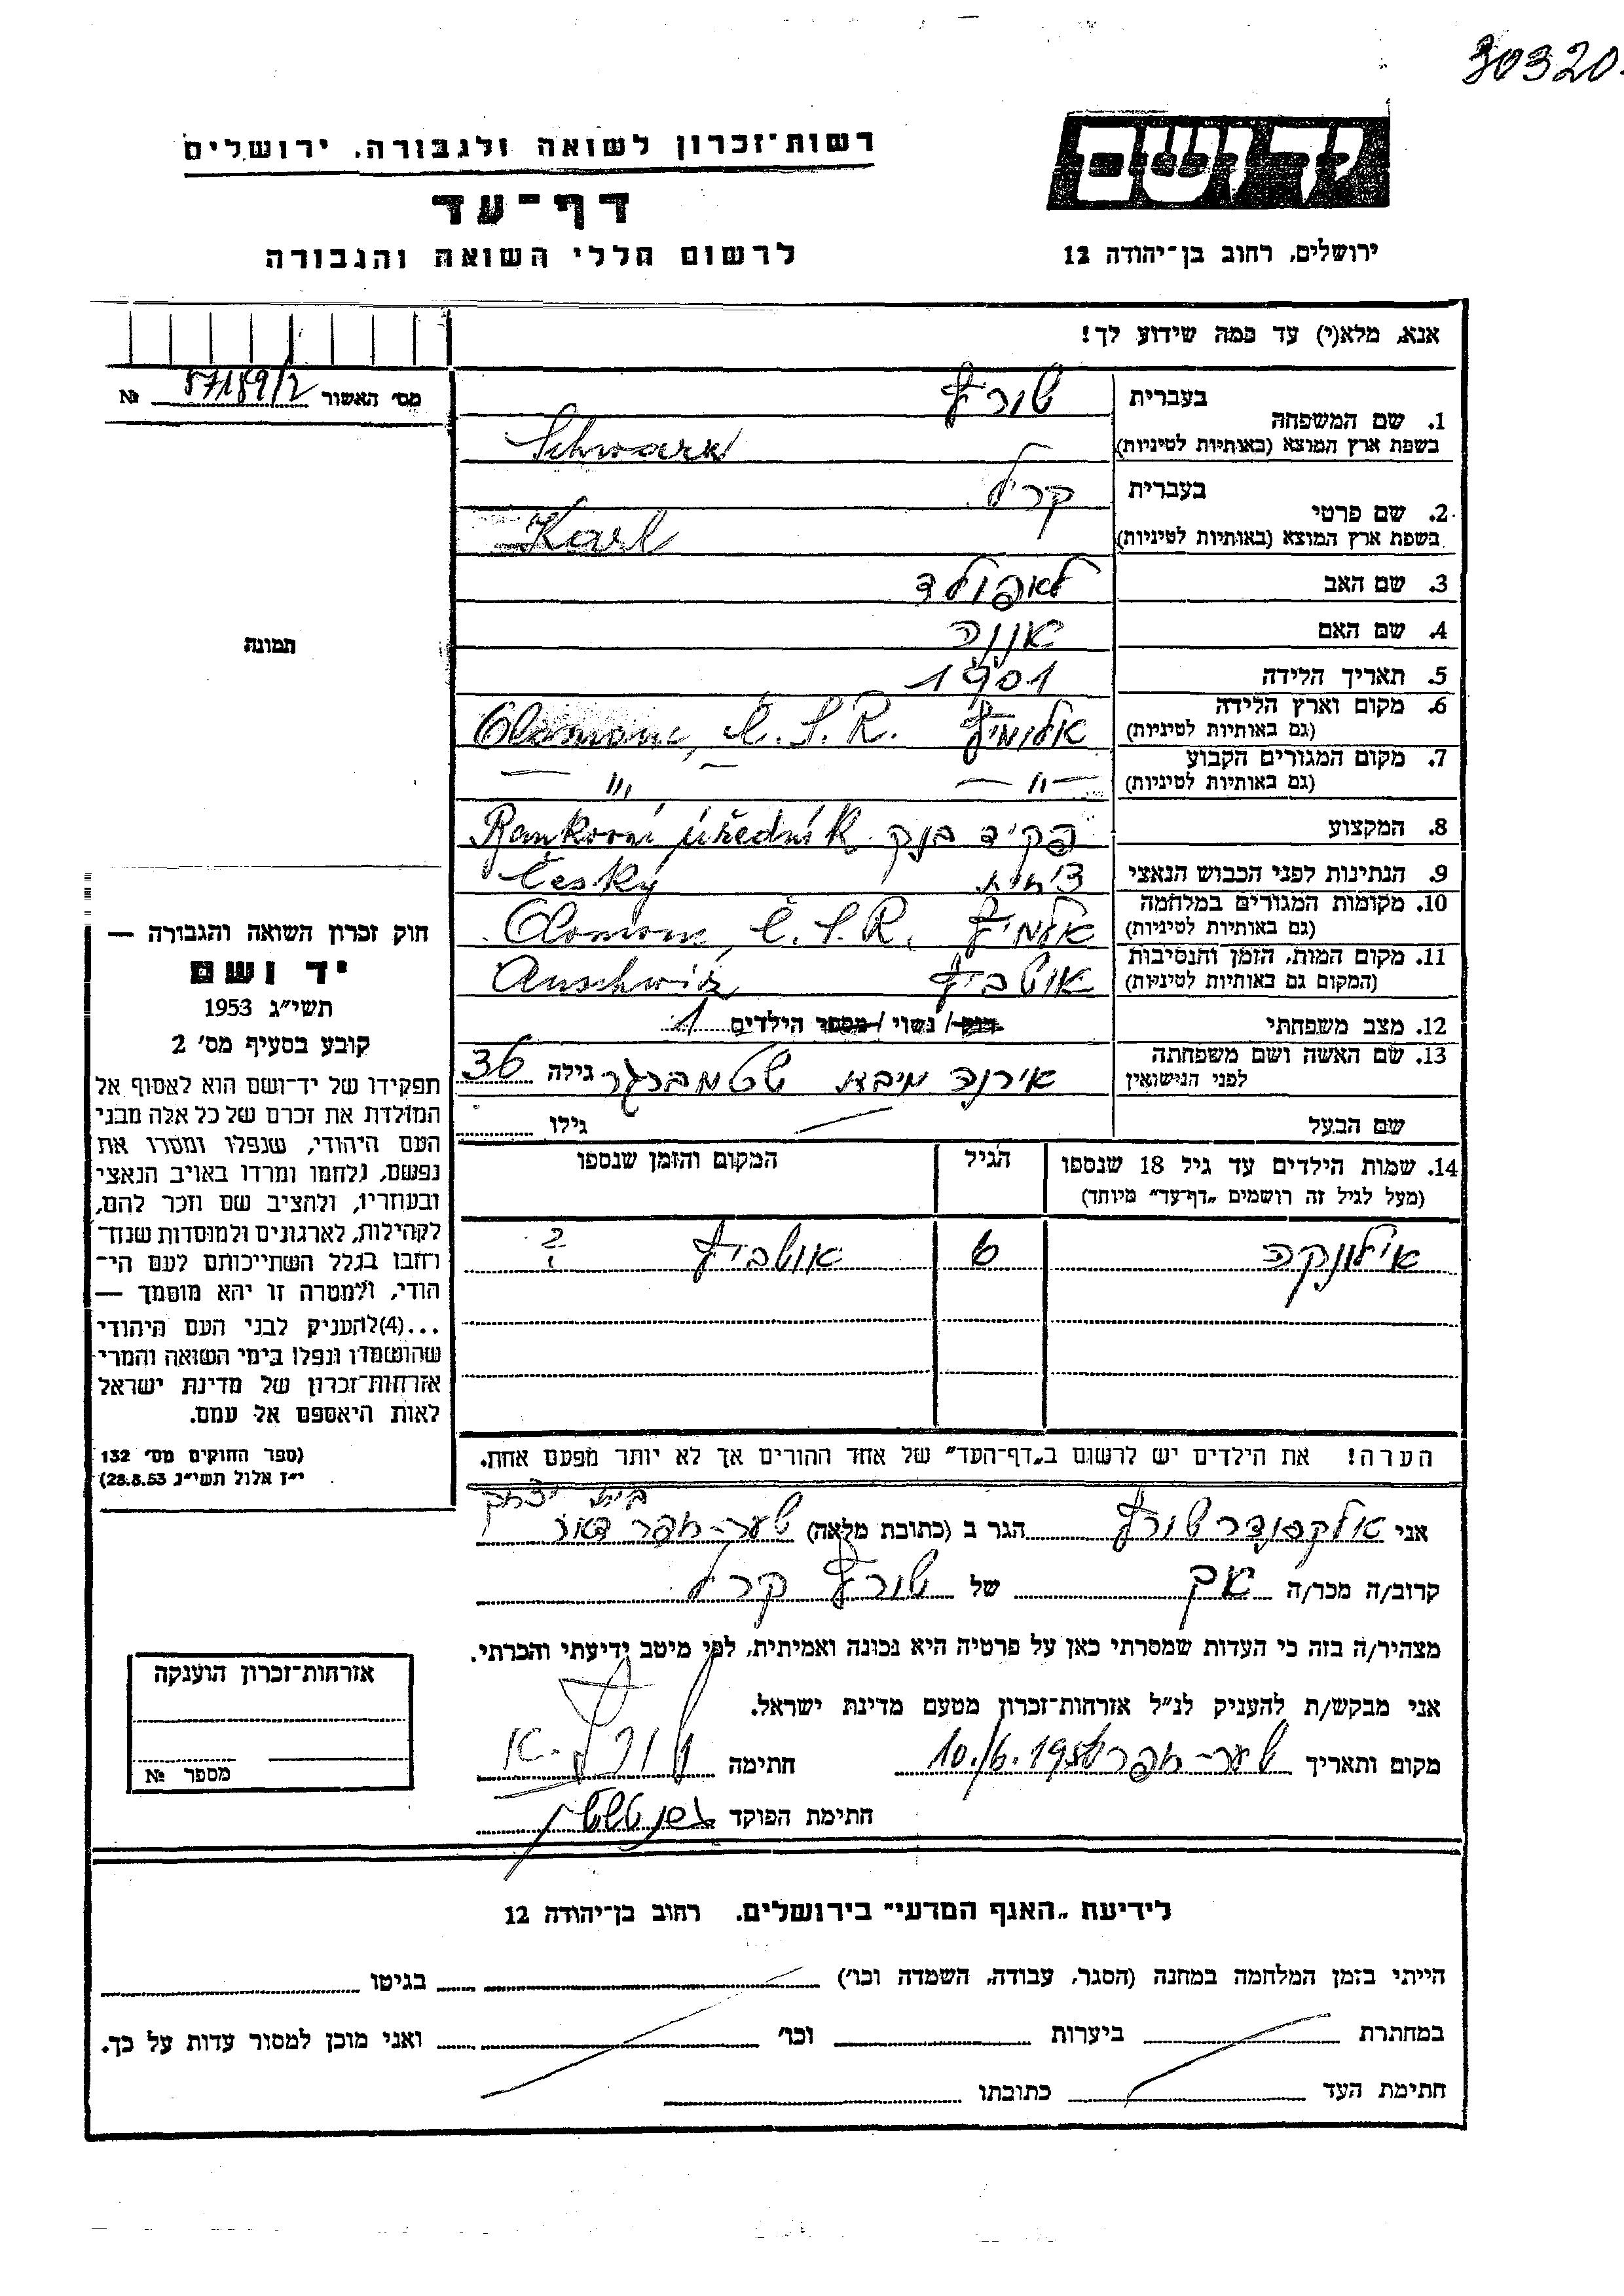 30320
יד ושם
רשות־זכרון לשואה ולגבורה, ירושלים
דף־עד
לרשום חללי השואה והגבורה
ירושלים, רחוב בן־יהודה 12
אנא, מלא(י) עד כמה שידוע לך!
מס' האשור № 57189/2
1. שם המשפחה
בעברית שורץ
בשפת ארץ המוצא (באותיות לטיניות) Schwarz
2. שם פרטי
בעברית קרל
בשפת ארץ המוצא (באותיות לטיניות) Karl
3. שם האב לאופולד
4. שם האם אננה
5. תאריך הלידה 1901
6. מקום וארץ הלידה
(גם באותיות לטיניות) אולומוץ Olomouc, Č. S. R.
7. מקום המגורים הקבוע
(גם באותיות לטיניות) — " — — " —
8. המקצוע פקיד בנק Bankovní úředník
9. הנתינות לפני הכבוש הנאצי צ'כית Česky
10. מקומות המגורים במלחמה
(גם באותיות לטיניות) Olomouc, Č. S. R.
11. מקום המות, הזמן והנסיבות
(המקום גם באותיות לטיניות) אושביץ Auschwitz
12. מצב משפחתי רווק / נשוי / מספר הילדים 1
13. שם האשה ושם משפחתה
לפני הנישואין אירנה מיבאו שטמברגר גילה 36
שם הבעל — גילו
14. שמות הילדים עד גיל 18 שנספו
(מעל לגיל זה רושמים „דף־עד” מיוחד)
הגיל
המקום והזמן שנספו
אילונקה 6 אושביץ ?
הערה! את הילדים יש לרשום ב„דף־העד” של אחד ההורים אך לא יותר מפעם אחת.
תמונה
חוק זכרון השואה והגבורה —
יד ושם
תשי״ג 1953
קובע בסעיף מס' 2
תפקידו של יד־ושם הוא לאסוף אל
המולדת את זכרם של כל אלה מבני
העם היהודי, שנפלו ומסרו את
נפשם, נלחמו ומרדו באויב הנאצי
ובעוזריו, ולהציב שם וזכר להם,
לקהילות, לארגונים ולמוסדות שנח־
רבו בגלל השתייכותם לעם הי־
הודי, ולמטרה זו יהא מוסמך —
...(4) להעניק לבני העם היהודי
שהושמדו ונפלו בימי השואה והמרי
אזרחות־זכרון של מדינת ישראל
לאות היאספם אל עמם.
(ספר החוקים מס' 132
י״ז אלול תשי״ג 28.8.53)
בית יצחק
אני אלכסנדר שורץ הגר ב (כתובת מלאה) שער־חפר דאר
קרוב/ה מכר/ה אב של שורץ קרל
מצהיר/ה בזה כי העדות שמסרתי כאן על פרטיה היא נכונה ואמיתית, לפי מיטב ידיעתי והכרתי.
אני מבקש/ת להעניק לנ״ל אזרחות־זכרון מטעם מדינת ישראל.
מקום ותאריך שער־חפר 10./6.1956 חתימה שורץ־א
חתימת הפוקד
אזרחות־זכרון הוענקה
מספר №
לידיעת „האגף המדעי” בירושלים, רחוב בן־יהודה 12
הייתי בזמן המלחמה במחנה (הסגר, עבודה, השמדה וכו') בגיטו
במחתרת ביערות וכו' ואני מוכן למסור עדות על כך.
חתימת העד כתובתו